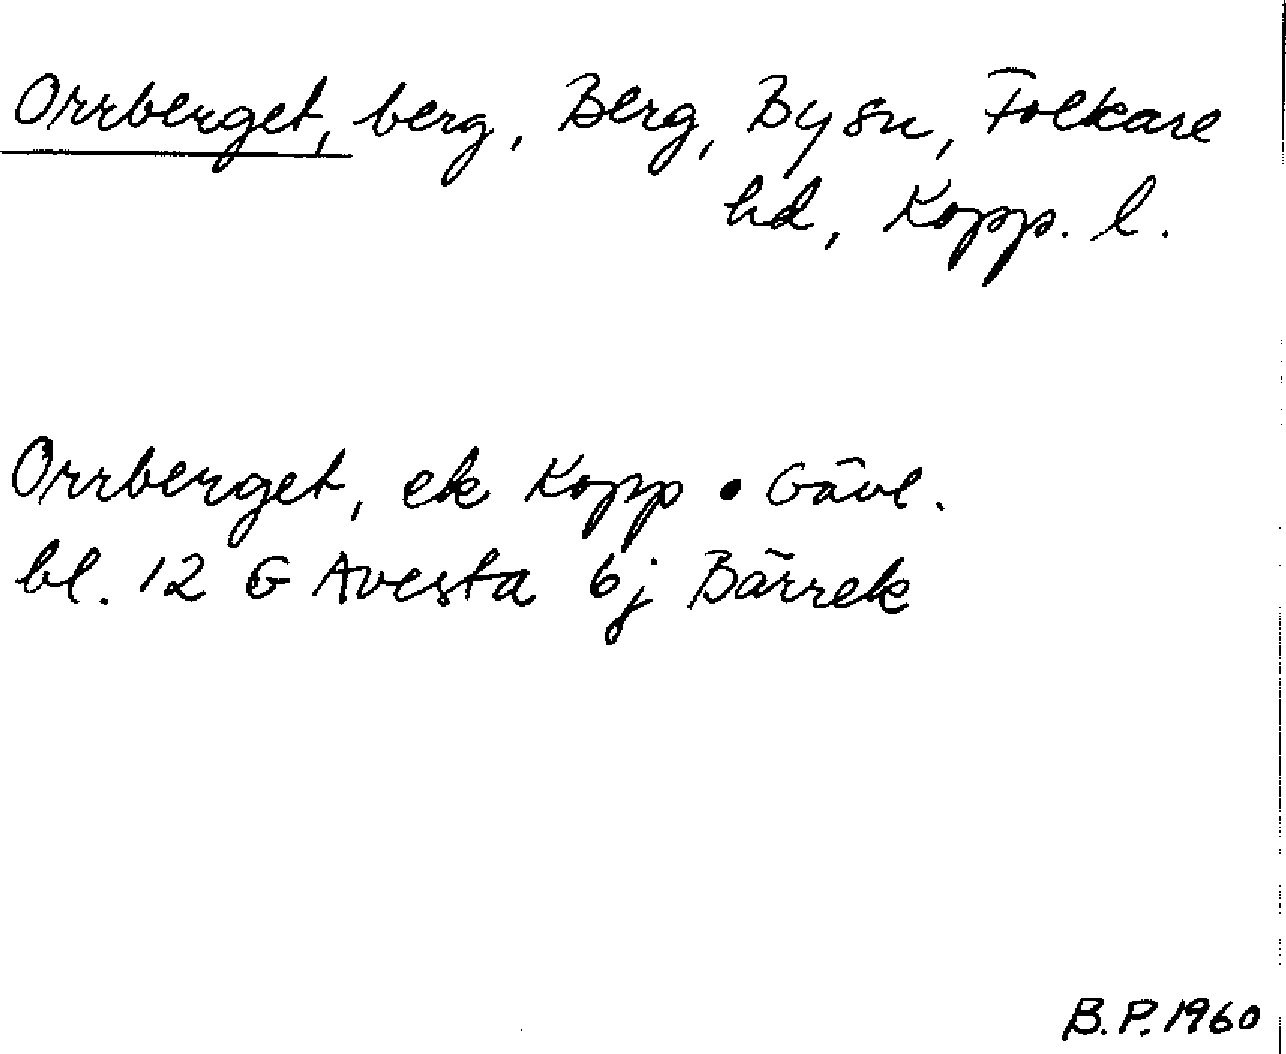 Orrberget, berg, Berg, By sn, Folkare
hd, Kopp. l.
Orrberget, ek Kopp • Gävl.
bl. 12 G Avesta 6j Bärrek
B.P. 1960